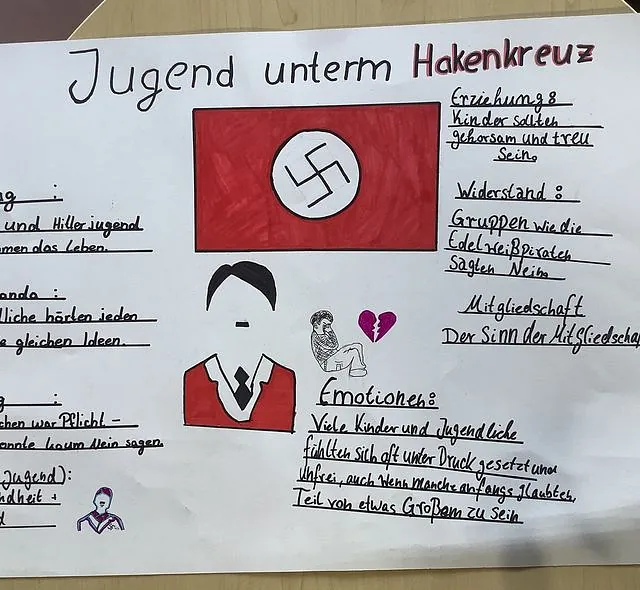 Jugend unterm Hakenkreuz
ng :
und Hitlerjugend
men das Leben.
anda :
lliche hörten jeden
e gleichen Ideen.
g :
chen war Pflicht -
onnte kaum Nein sagen.
Jugend):
ndheit +
d
Erziehung:
Kinder sollten
gehorsam und treu
Sein.
Widerstand :
Gruppen wie die
Edelweißpiraten
sagten Nein.
Mitgliedschaft
Der Sinn der Mitgliedschaf
Emotionen:
Viele Kinder und Jugendliche
fühlten sich oft unter Druck gesetzt und
Unfrei, auch wenn manche anfangs glaubten,
Teil von etwas Großem zu sein